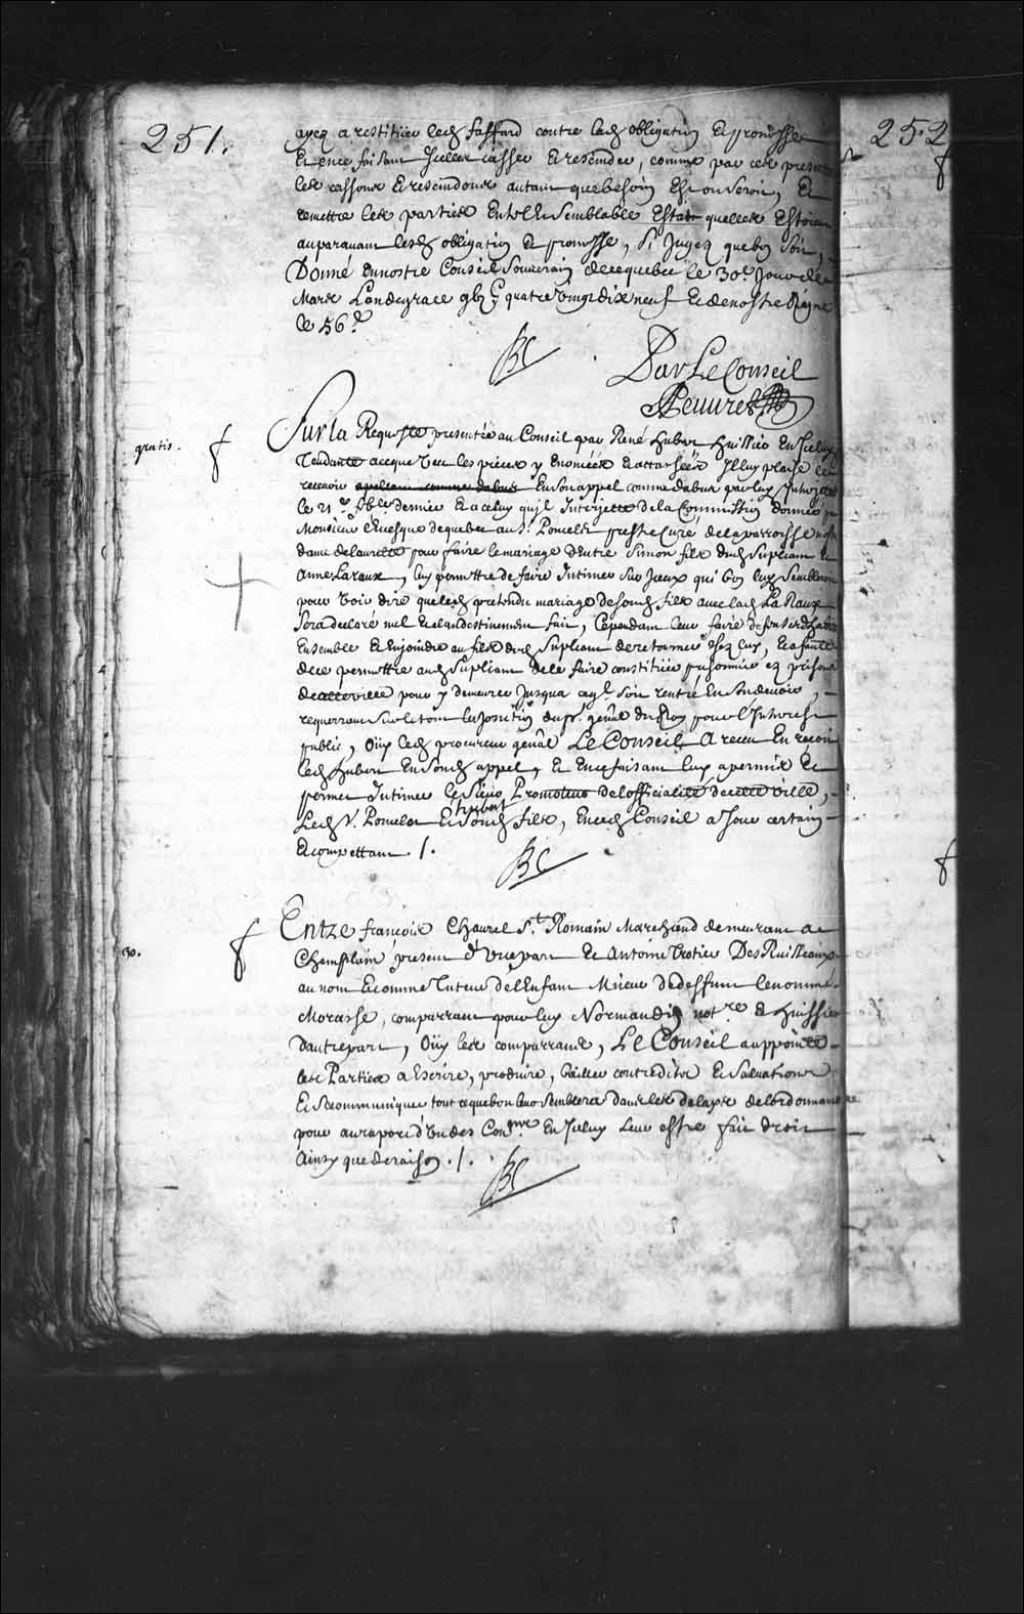 251.
252
ayez a restituer led. Faffard contre lad. obligation Et promesse
Et en ce faisant Icelles casser Et rescinder, comme par ces presentes
les cassons Et rescindons autant que besoin Est ou seroit, Et
remettre les parties En tel Et Semblable Estat quelles Estoient
auparavant lesd. obligation Et promesse, Si Jugez que bon Soit,
Donné En nostre Conseil Souverain de Quebec le 30e. Jour de
Mars Lan de grace gbjC quatre vingt dix neuf Et de nostre Regne
le 56e.
Par Le Conseil
Peuvret
gratis.
Sur la Requeste presentée au Conseil par René hubert huissier En Iceluy
Tendante a ce que Veu les pieces y Enoncées Et attachées Il luy plaise le
recevoir appellant comme dabus En Son appel comme dabus par luy Interjetté
le 21e. dernier Et a celuy quil Interjette de la Commission donnée par
Monsieur L'Evesque de quebec au Sr. Pomelet prestre Curé de la parroisse nostre
dame de laurette pour faire le mariage d'Entre Simon fils dud. Supliant Et
Anne Laraux, luy permettre de faire Intimer Sur Iceux qui bon luy Semblera
pour Voir dire que led. pretendu mariage de Sond. fils avec lad. La Raux
Sera declaré nul Et clandestinement fait, Cependant leur faire deffenses
Ensemble Et Enjoindre au fils dud. Supliant de retourner chez luy, Et a faute
de ce permettre aud. Supliant de le faire constituer prisonnier ez prisons
de cette ville pour y demeurer Jusqua ce quil Soit rentré En Son devoir,
requerrant Sur le tout la Jonction du pr. genal du Roy pour l'Interest
public, Ouy led. procureur genal Le Conseil A receu Et reçoit
led. hubert En Sond. appel, Et En ce faisant luy a permis Et
permet Intimer le Sieur Promoteur de lofficialité de cette ville,
Led. Sr. Pomelet Et Sond. hubert fils, En ced. Conseil a Jour certain
Et compettant ./.
30.
Entre françois Chaurel St. Romain Marchand demeurant a
Champlain present d'une part Et Antoine Trotier Des Ruisseaux
au nom Et comme Tuteur de l'Enfant Mineur de deffunt le nommé
Morasse, comparrant pour luy Normandin notre. Et huissier
dautre part, Ouy les comparrans, Le Conseil a appointé
les Parties a Escrire, produire, bailler contredits Et Salvations
Et Se communiquer tout ce que bon leur Semblera dans les delays de lordonnance
pour au raport d'Un des Coners. En Iceluy leur estre fait droit
Ainsy que de raison ./.